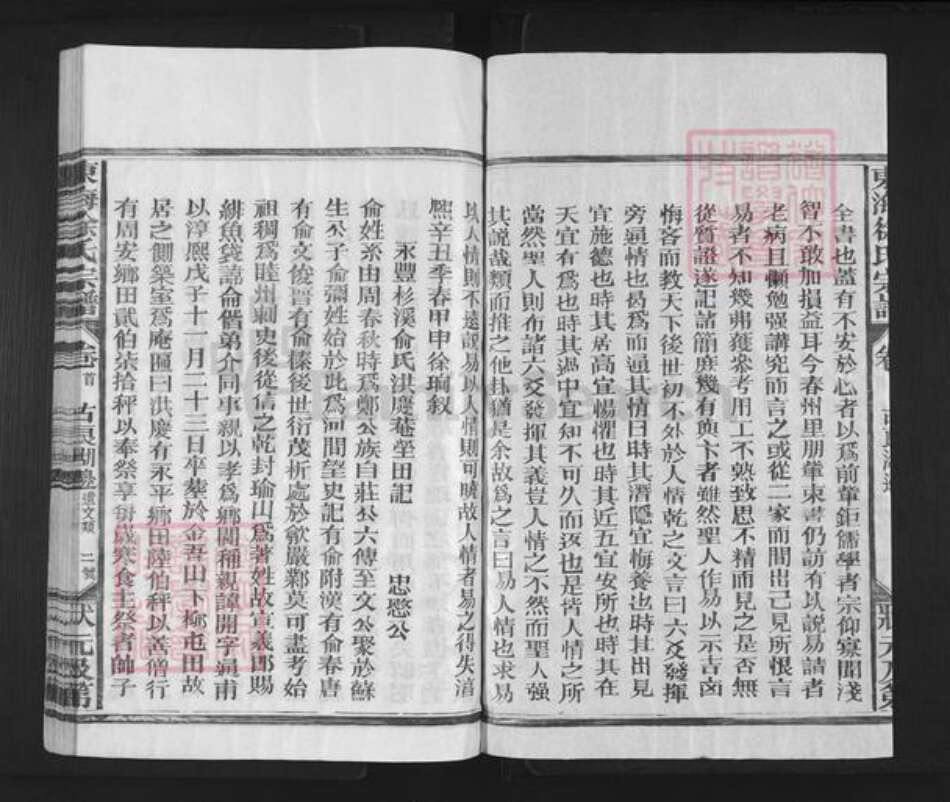 全書也蓋有不安於心者以爲前輩鉅儒學者宗仰寡聞淺
智不敢加損益耳今春州里朋輩束書仍訪有以說易請者
老病且懶勉强講究而言之或從二家而間出己見所恨言
易者不知幾弗獲叅考用工不熟致思不精而見之是否無
從質證遂記諸簡庶幾有與卞者雖然聖人作易以示吉凶
悔吝而教天下後世初不外於人情乾之文言曰六爻發揮
旁通情也曷爲而通其情曰時其潛隱宜悔養也時其出見
宜施德也時其居高宜惕懼也時其近五宜安所也時其在
天宜有爲也時其過中宜知不可久而返也是皆人情之所
當然聖人則布諸六爻發揮其義豈人情之不然而聖人强
其說哉類而推之他卦猶是余故爲之言曰易人情也求易
以人情則不遠説易以人情則可曉故人情者易之得失淯
熙辛丑季春甲申徐珦叙
永豐杉溪俞氏洪慶菴塋田記　忠愍公
俞姓系由周春秋時爲鄭公族自莊公六傳至文公聚於蘇
生公子俞彌姓始於此爲河間望史記有俞附漢有俞春唐
有俞文俊晋有俞傣後世衍茂析處於歙嚴鄴莫可盡考始
祖稠爲睦州刺史後從信之乾封瑜山爲著姓故宣義郎賜
緋魚袋諱侖偕弟介同事親以孝爲鄉閭稱親諱開字漏甫
以淳熈戊子十一月二十三日卒塟於金吾山下椰屯田故
居之側築室爲庵匾曰洪慶有永平鄉田陸伯秤以善僧行
有周安鄉田貳伯柒拾秤以奉祭享衎歲寒食主祭者帥子
東海徐氏宗譜　卷首　古良湖邊遺文類　二號　狀元及第
東海徐氏宗譜　卷